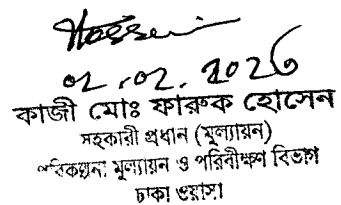 Hossein
02.02.2026
কাজী মোঃ ফারুক হোসেন
সহকারী প্রধান (মূল্যায়ন)
পরিকল্পনা মূল্যায়ন ও পরিবীক্ষণ বিভাগ
ঢাকা ওয়াসা